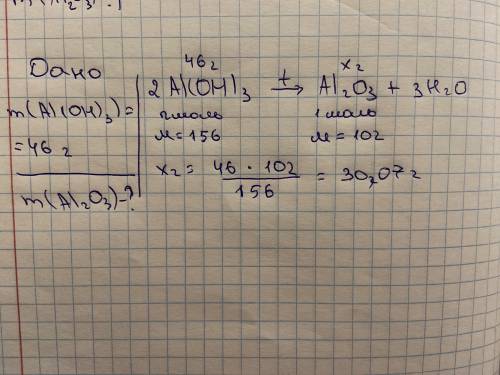 Дано
m(Al(OH)₃) =
= 46 г
m(Al₂O₃) - ?
46 г x г
2Al(OH)₃ —t→ Al₂O₃ + 3H₂O
2моль 1 моль
M = 156 M = 102
x г = 46 · 102 / 156 = 30,07 г